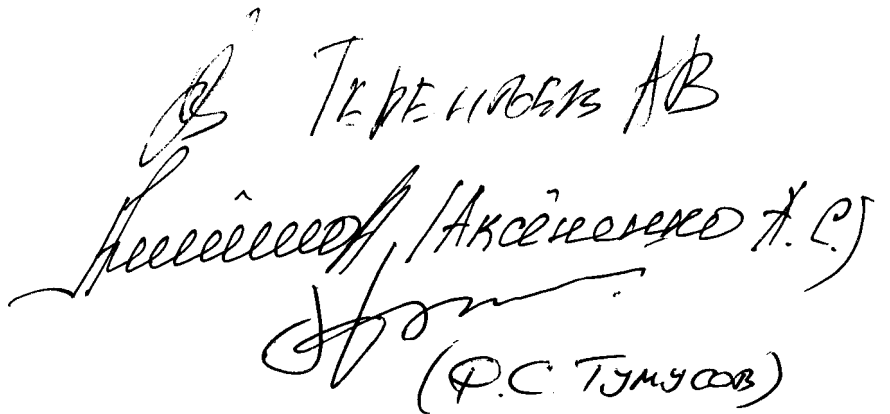 Терентьев АВ
/Аксёненко А.С./
(Ф.С. Тумусов)